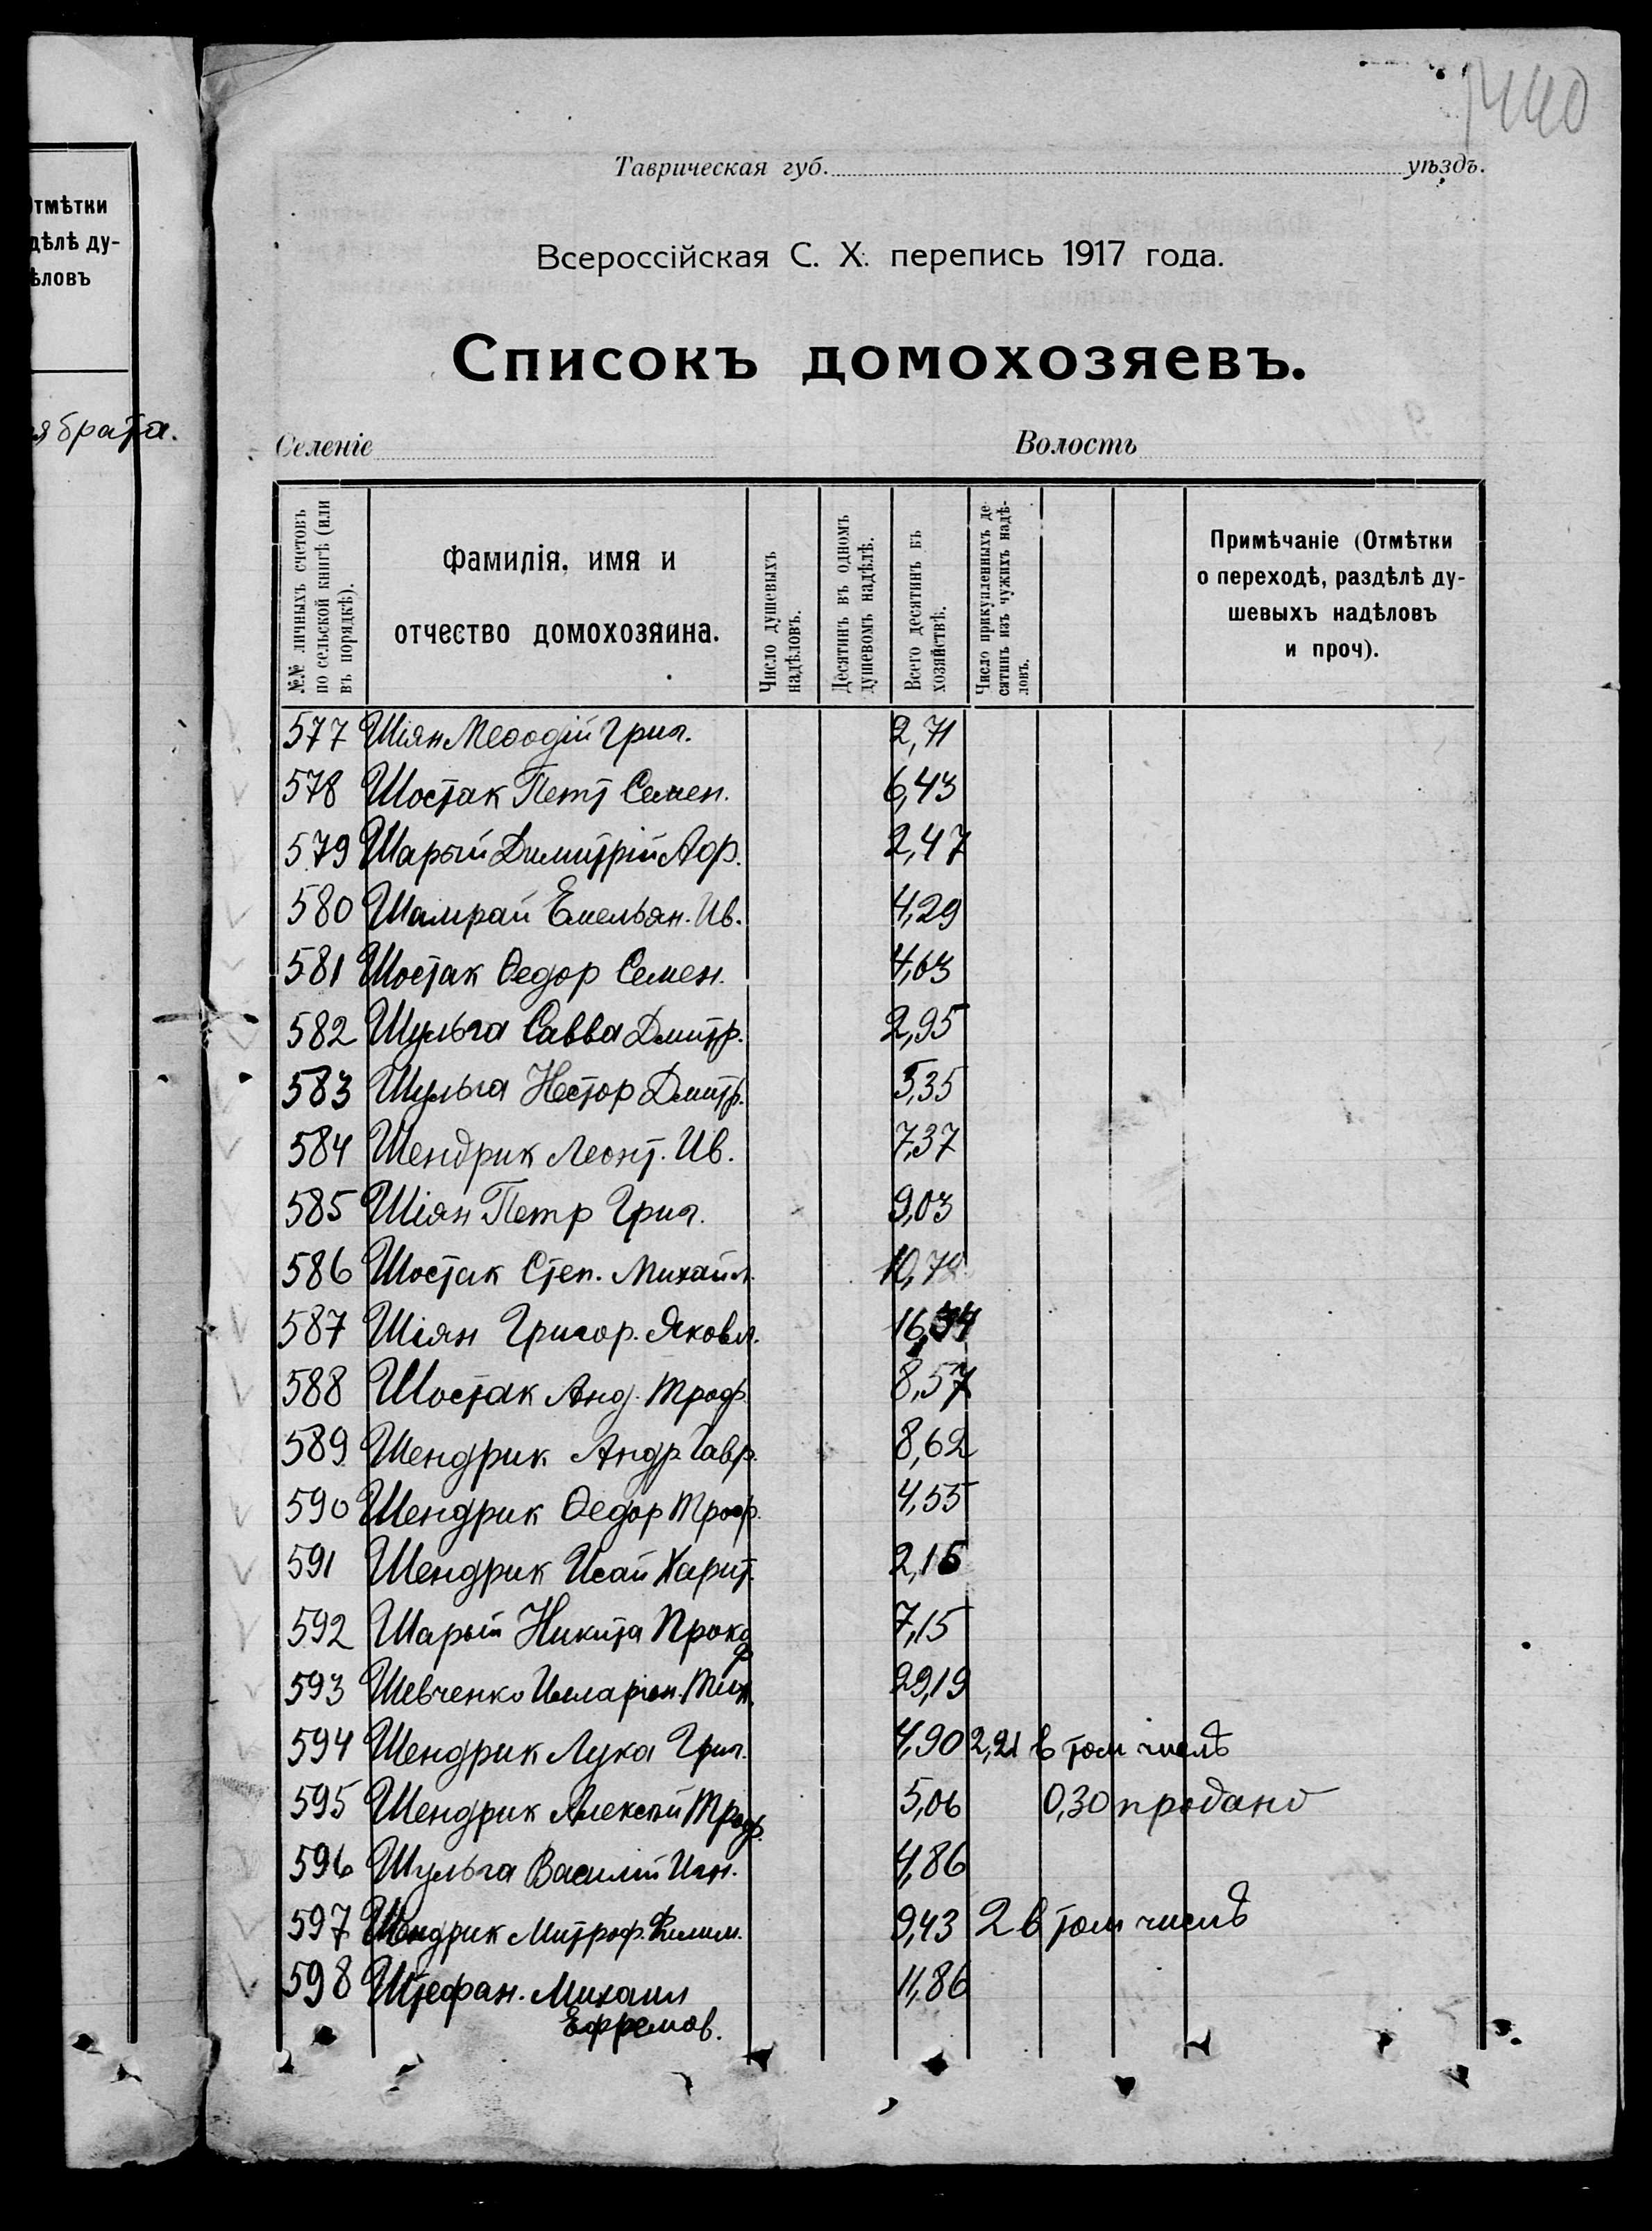 тмѣтки
дѣлѣ ду-
ѣловъ
я брата.
440
Таврическая губ. уѣздъ.
Всероссійская С. Х. перепись 1917 года.
Списокъ домохозяевъ.
Селеніе Волость
№№ личныхъ счетовъ
по сельской книгѣ (или
въ порядкѣ).
Фамилія, имя и
отчество домохозяина.
Число душевыхъ
надѣловъ.
Десятинъ въ одномъ
душевомъ надѣлѣ.
Всего десятинъ въ
хозяйствѣ.
Число прикупленныхъ де-
сятинъ изъ чужихъ надѣ-
ловъ.
Примѣчаніе (Отмѣтки
о переходѣ, раздѣлѣ ду-
шевыхъ надѣловъ
и проч).
577 Шіян Меѳодій Григ. 2,71
578 Шостак Петр Семен. 6,43
579 Шарый Димитрій 2,47
580 Шамрай Емельян. Ив. 4,29
581 Шостак Ѳедор Семен. 4,63
582 Шульга Савва Дмитр. 2,95
583 Шульга Нестор Дмитр. 5,35
584 Шендрик Леонт. Ив. 7,37
585 Шіян Петр Григ. 9,03
586 Шостак Степ. Михайл.
587 Шіян Григор. Яковл.
588 Шостак Анд. Троф. 8,57
589 Шендрик Андр. Гавр. 8,62
590 Шендрик Ѳедор Троф. 4,55
591 Шендрик Исай Харит.
592 Шарый Никита Прокоф 7,15
593 Шевченко Илларіон. 29,19
594 Шендрик Лука Григ. 4,90 2,21 в том числѣ
595 Шендрик Алексѣй Троф. 5,06 0,30 продано
596 Шульга Василій Игн. 4,86
597 Шендрик Митроф. Филим. 9,43 2 в том числѣ
598 Штефан. Михаил 11,86
Ефремов.